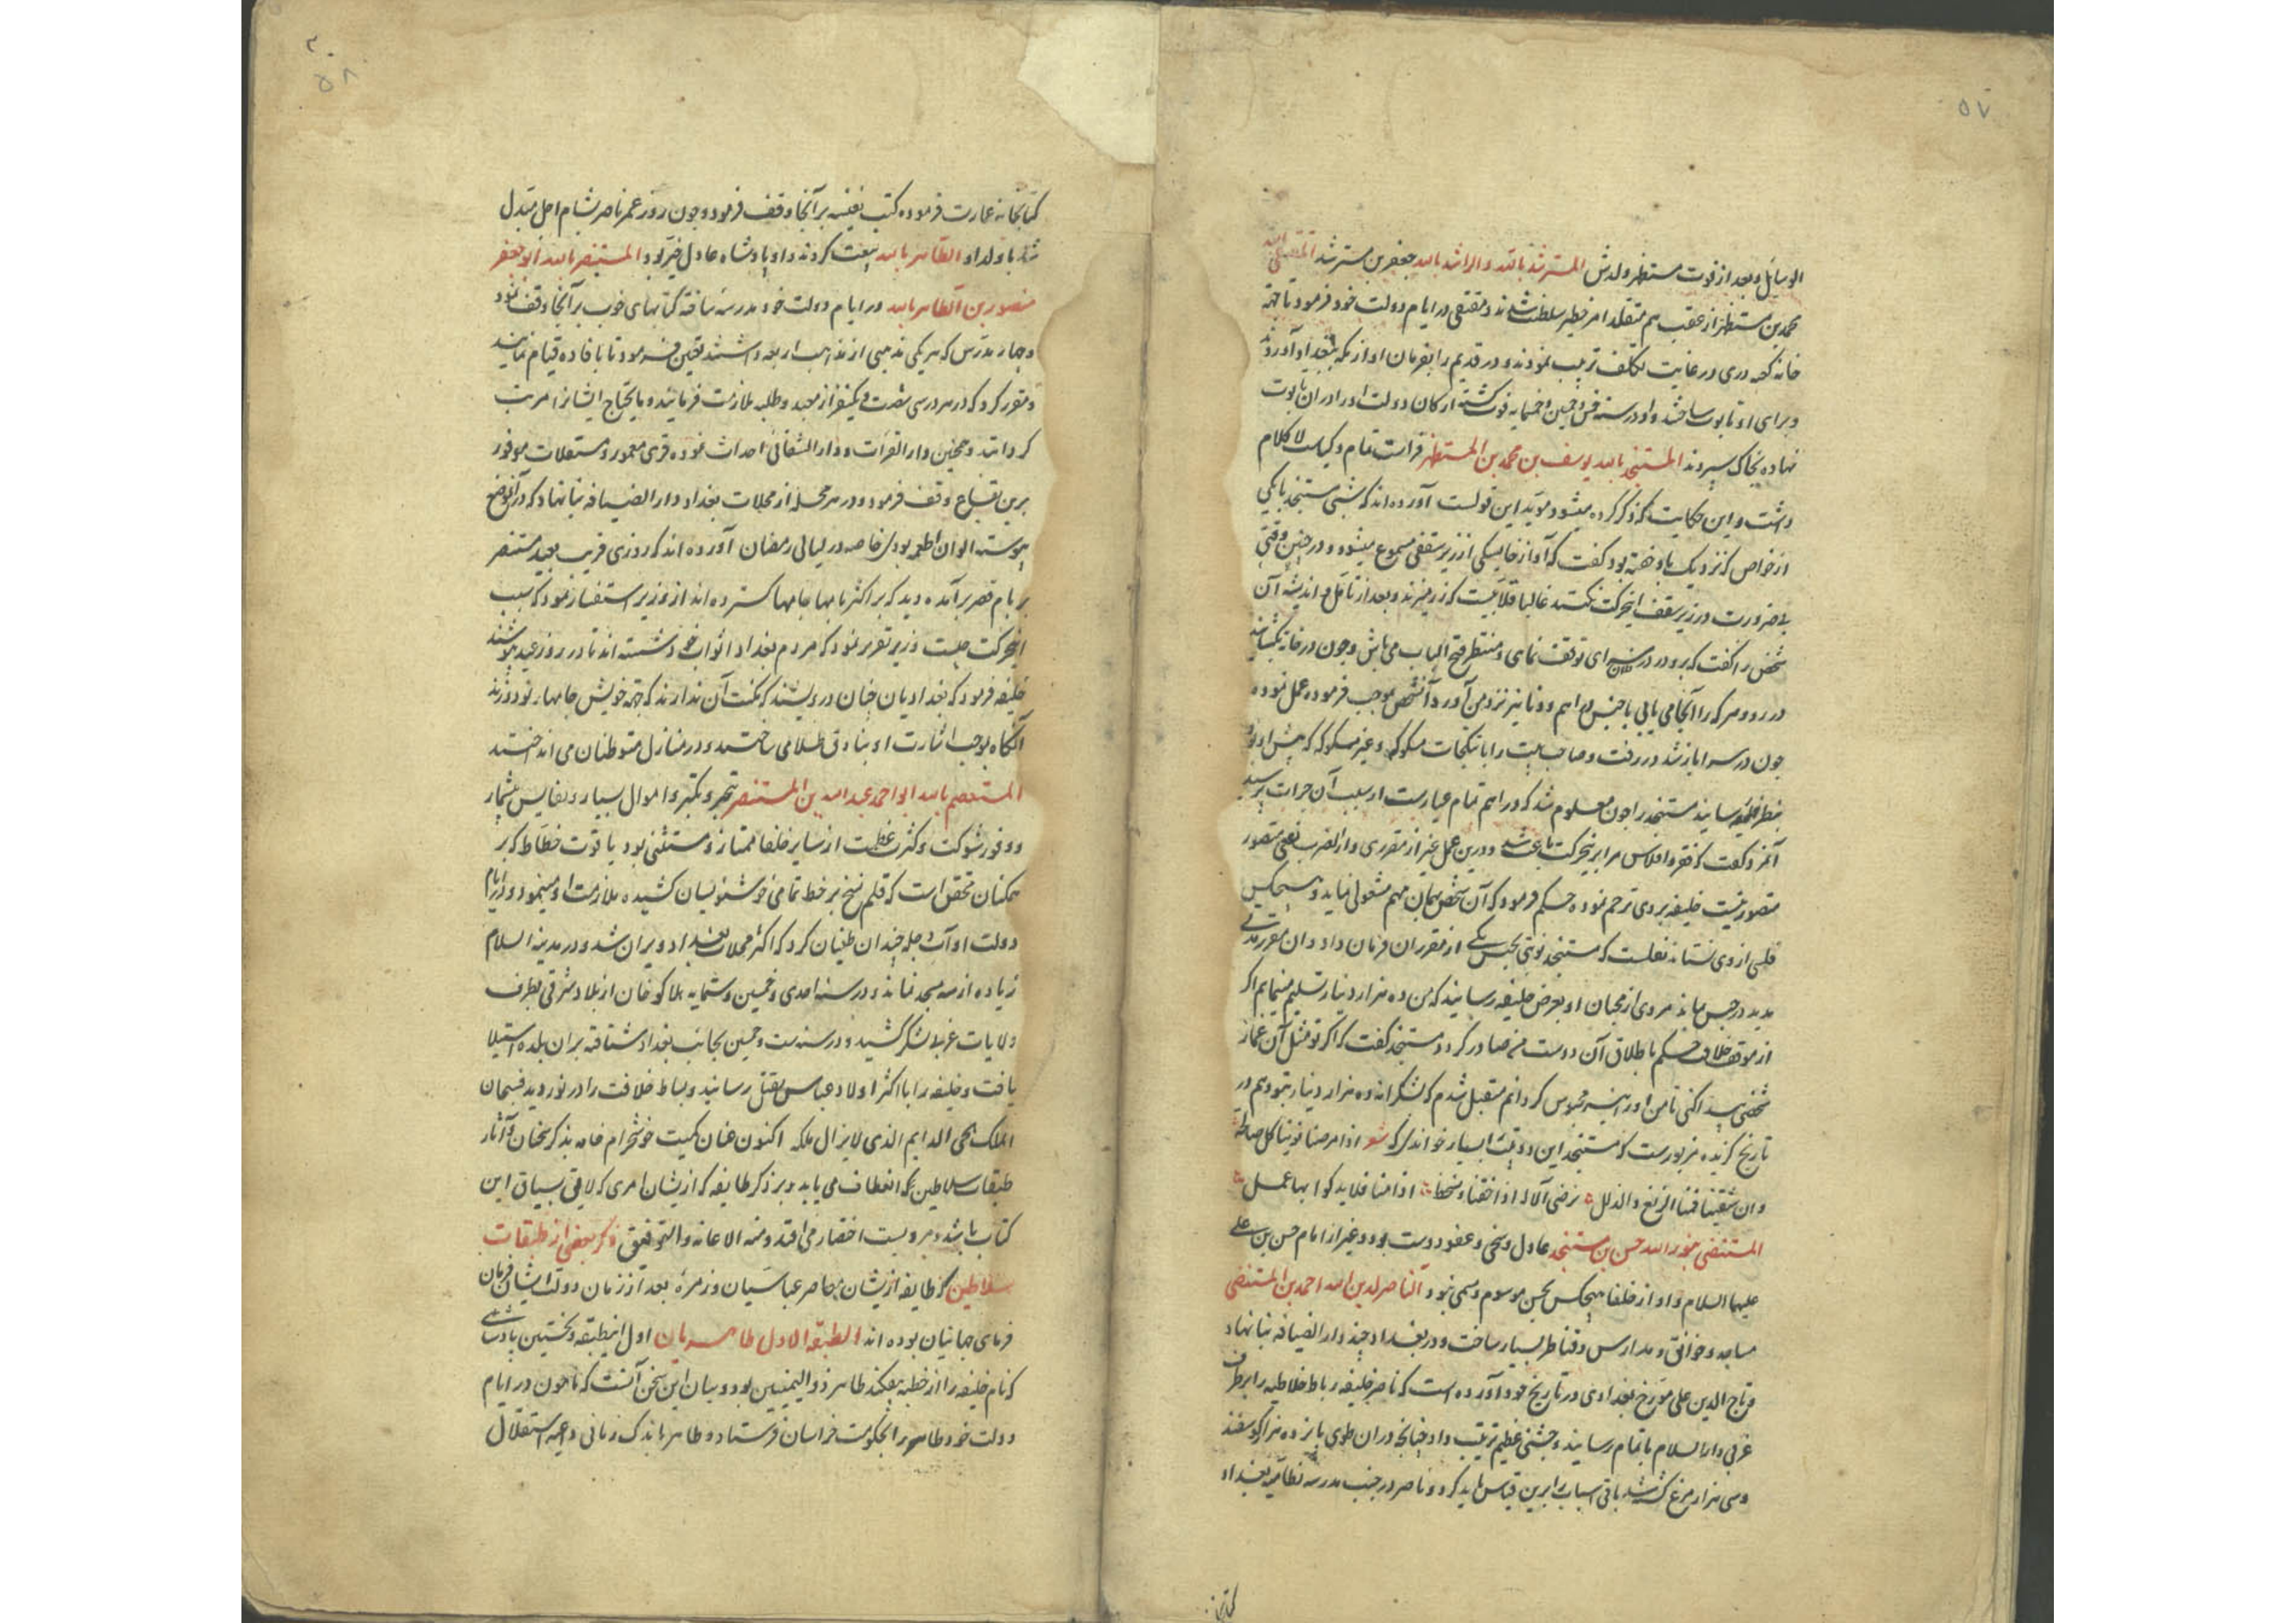 ۵۷
الوسایل و بعد از فوت مستظهر ولدش المسترشد بالله و الراشد بالله جعفر بن مسترشد المقتفی لله
محمد بن مستظهر از عقب هم متقلد امر خطیر سلطنت شدند و مقتفی در ایام دولت خود فرمود تا جهة
خانه کعبه دری در غایت تکلف ترتیب نمودند و در قدیم را بفرمان او از مکه ببغداد آوردند
و برای او تابوت ساختند و او در سنه خمس و خمسین و خمسمایه فوت گشته ارکان دولت او را در ان تابوت
نهاده بخاک سپردند المستنجد بالله یوسف بن محمد بن المستظهر فراست تمام و کیاست لا کلام
داشت و این حکایت که ذکر کرده میشود موید این قولست آورده اند که شبی مستنجد با یکی
از خواص که نزدیک باو خفته بود گفت که آواز خایسکی از زیر سقفی مسموع میشود و در چنین وقتی
بی ضرورت در زیر سقف اینحرکت نکنند غالبا قلابیست که زر میزند و بعد از تامل و اندیشه آن
شخص را گفت که برو در در سرای توقف نمای و منتظر فتح الباب می باش و چون در خانه بگشایند
در رو و هر که را آنجا می یابی با جنس دراهم و دنانیر نزد من آور و آنشخص بموجب فرموده عمل نموده
چون در سرا باز شد در رفت و صاحب بیت را با تنکجات مسکوکه و غیر مسکوکه که پیش او بود
بنظر خلیفه رسانید مستنجد را چون معلوم شد که دراهم تمام عیارست از سبب آن جرات پرسید
آنمرد گفت که فقر و افلاس مرا برینحرکت باعث شد و درین عمل غیر از مقرری دار الضرب نقصی متصور
متصور نیست خلیفه بر وی ترحم نموده حکم فرمود که آن شخص بهمان مهم مشغولی نماید و هیچکس
فلسی از وی نستاند نقلست که مستنجد نوبتی بحبس یکی از مقرران فرمان داد و ان مقرر مدتی
مدید در حبس بماند مردی از محبان او بعرض خلیفه رسانید که من ده هزار دینار تسلیم مینمایم اگر
از موقف خلافت حکم باطلاق آن دوست من صادر گردد مستنجد گفت که اگر تو مثل آن غماز
شخصی پیدا کنی تا من او را نیز محبوس گردانم متقبل شدم که بشکرانه ده هزار دینار بتو دهم در
تاریخ گزیده مزبورست که مستنجد این دو بیت بسیار خواندی که شعر اذا مرضنا نوینا کل صالحة
و ان شفینا فمنا الزیغ و الزلل نرضی الاله اذا خفنا و نسخطه اذا امنا فلا یدکوا لها عمل
المستضی بنور الله حسن بن مستنجد عادل و سخی و عفو دوست بود و غیر از امام حسن بن علی
علیهما السلام و او از خلفا هیچکس بحسن موسوم و مسمی نبود الناصر لدین الله احمد بن المستضی
مساجد و خوانق و مدارس و قناطر بسیار ساخت و در بغداد چند دار الضیافه بنا نهاد
و تاج الدین علی مورخ بغدادی در تاریخ خود آورده است که ناصر خلیفه رباط خلاطیه را بر طرف
غربی دار السلام باتمام رسانید و جشنی عظیم ترتیب داد چنانچه در ان طوی پانزده هزار گوسفند
و سی هزار مرغ کشته شد باقی اسباب را برین قیاس باید کرد و ناصر در جنب مدرسه نظامیه بغداد
۵۸
کتابخانه عمارت فرموده کتب نفیسه بر آنجا وقف فرمود و چون روز عمر ناصر بشام اجل مبدل
شد با ولد او الظاهر بالله بیعت کردند و او پادشاه عادل خیر بود المستنصر بالله ابو جعفر
منصور بن الظاهر بالله در ایام دولت خود مدرسه ساخته کتابهای خوب بر آنجا وقف نمود
و چهار مدرس که هر یکی مذهبی از مذاهب اربعه داشتند تعیین فرمود تا بافاده قیام نمایند
و مقرر کرد که در هر درسی شصت و یکنفر از معید و طلبه ملازمت فرمایند و ما یحتاج ایشانرا مرتب
گردانند و همچنین دار القرات و دار الشفائی احداث نموده قری معمور و مستغلات موفور
برین بقاع وقف فرمود و در هر محله از محلات بغداد دار الضیافه بنا نهاد که در آنموضع
پیوسته الوان اطعمه بودی خاصه در لیالی رمضان آورده اند که روزی قریب بعید مستنصر
بر بام قصر برآمده دید که بر اکثر بامها جامها گسترده اند از وزیر استفسار نمود که سبب
اینحرکت چیست وزیر تقریر نمود که مردم بغداد اثواب خود شسته اند تا در روز عید پوشند
خلیفه فرمود که بغدادیان چنان درویشند که مکنت آن ندارند که جهة خویش جامها نو دوزند
آنگاه بموجب اشارت او بنادق طلا می ساختند و در منازل متوطنان می انداختند
المستعصم بالله ابو احمد عبد الله بن المستنصر بتجبر و تکبر و اموال بسیار و نفایس بیشمار
و وفور شوکت و کثرت عظمت از سایر خلفا ممتاز و مستثنی بود یاقوت خطاط که بر
همکنان محقق است که قلم نسخ بر خط تمامی خوشنویسان کشیده ملازمت او مینمود و در ایام
دولت او آب دجله چندان طغیان کرد که اکثر محلات بغداد ویران شد و در مدینه السلام
زیاده از سه مسجد نماند و در سنه احدی و خمسین و ستمایه هلاکو خان از بلاد شرقی بطرف
ولایات غربی لشکر کشید و در سنه ست و خمسین بجانب بغداد شتافته بران بلده استیلا
یافت و خلیفه را با اکثر اولاد عباس بقتل رسانید و بساط خلافت را در نوردید فسبحان
الملک الحی الدایم الذی لا یزال ملکه اکنون عنان کمیت خوشخرام خامه بذکر سخنان و آثار
طبقات سلاطین عجم انعطاف می یابد و بر ذکر طایفه که از یشان امری که لایق بسیاق این
کتاب باشد مرویست اختصار می افتد و منه الاعانه و التوفیق ذکر بعضی از طبقات
سلاطین که طایفه از یشان معاصر عباسیان و زمرهٔ بعد از زمان دولت ایشان فرمان
فرمای جهانیان بوده اند الطبقه الاول طاهریان اول اینطبقه و نخستین پادشاهی
که نام خلیفه را از خطبه بیفکند طاهر ذو الیمینین بود و بیان این سخن آنست که مامون در ایام
دولت خود طاهر را بحکومت خراسان فرستاد و طاهر باندک زمانی داعیه استقلال